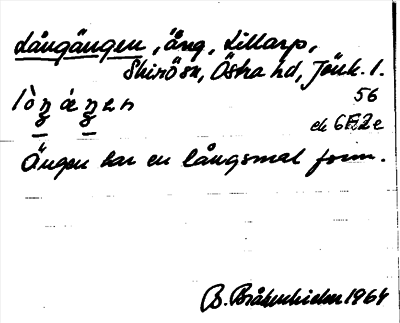 Långängen, äng, Lillarp,
Skirö sn, Östra hd, Jönk. l.
lòŋ áŋen 56
ek 6F2e
Ängen har en långsmal form.
B. 1964